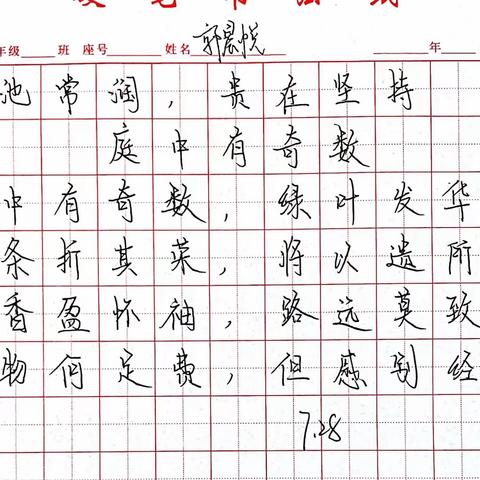 年级 班 座号 姓名 郭晨悦 年
池常润，贵在坚持
庭中有奇数
中有奇数，绿叶发华
条折其菜，将以遗所
香盈怀袖，路远莫致
物何足费，但感别经
7.28